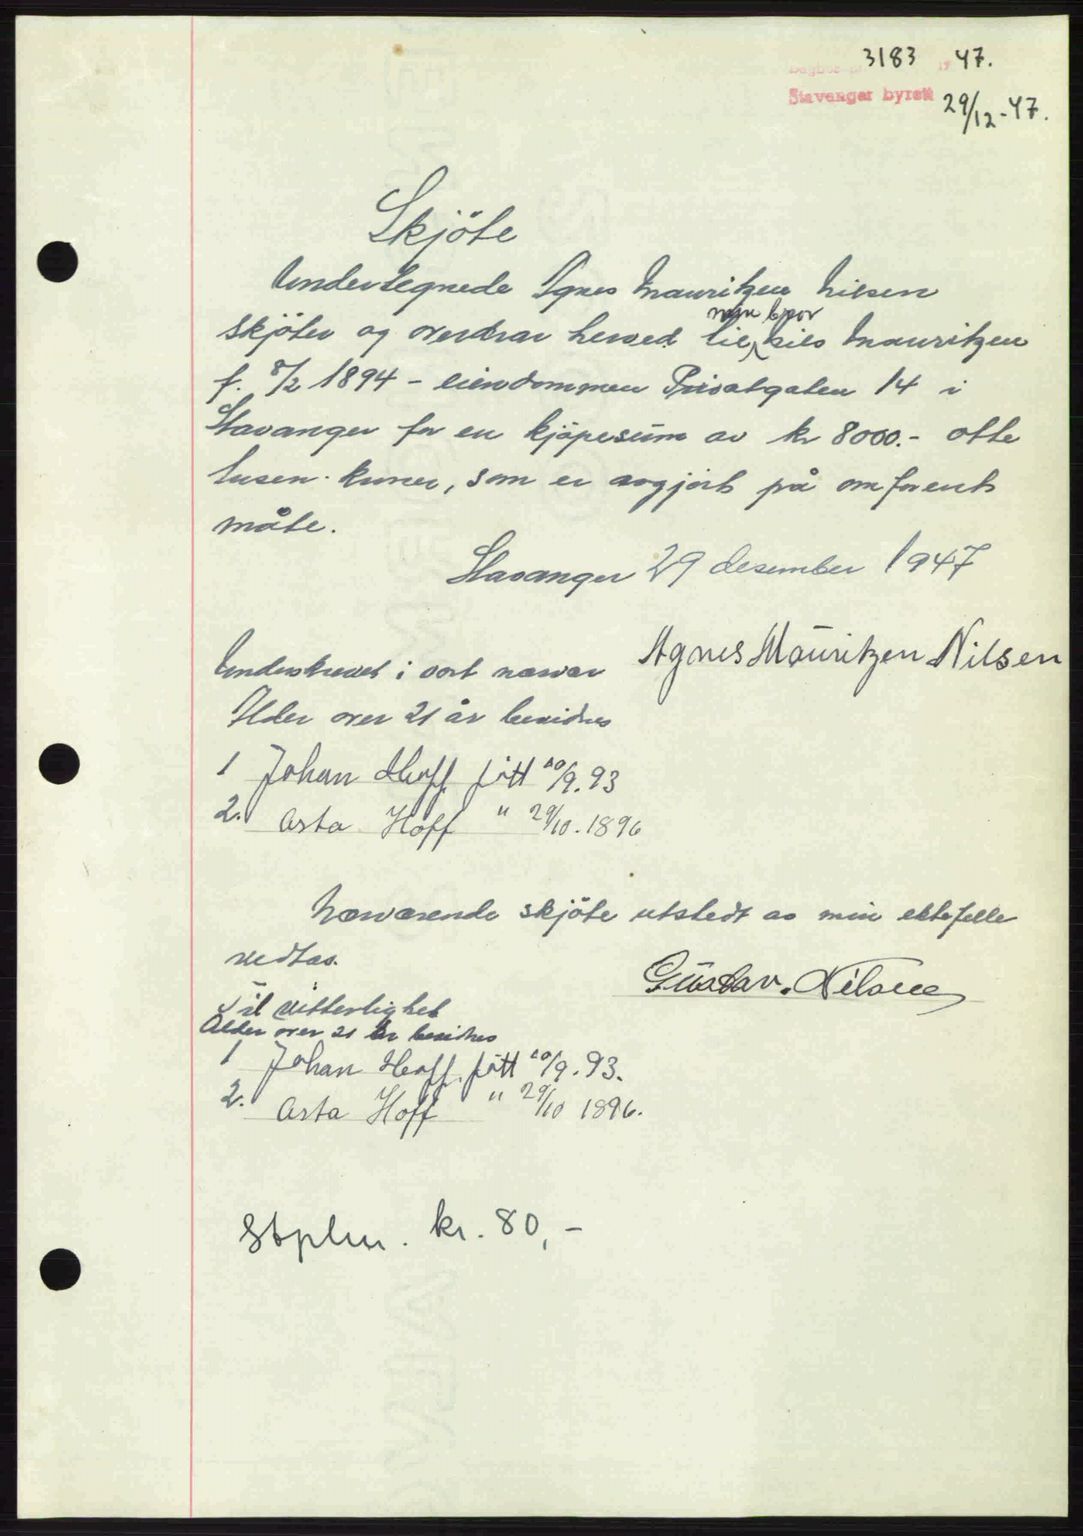 Dagbok 3183 19 47.
Stavanger byrett 29/12-47.
Skjöte
Undertegnede Agnes Mauritzen Nilsen
min bror
skjöter og overdrar herved til Nils Mauritzen
f. 8/2 1894 - eiendommen Privatgaten 14 i
Stavanger for en kjöpesum av kr 8000.- otte
tusen kroner, som er avgjort på omforent
måte.
Stavanger 29 desember 1947
Agnes Mauritzen Nilsen
Underskrevet i vort nærvær
Alder over 21 år bevidnes
1 Johan Hoff född 20/9.93
2. Asta Hoff " 29/10.1896
Nærværende skjöte utstedt av min ektefelle
vedtas.
Gustav. Nilsen
Til vitterlighet
Alder over 21 år bevidnes
1 Johan Hoff född 20/9.93.
2. Asta Hoff " 29/10 1896.
Stplm. kr. 80,-